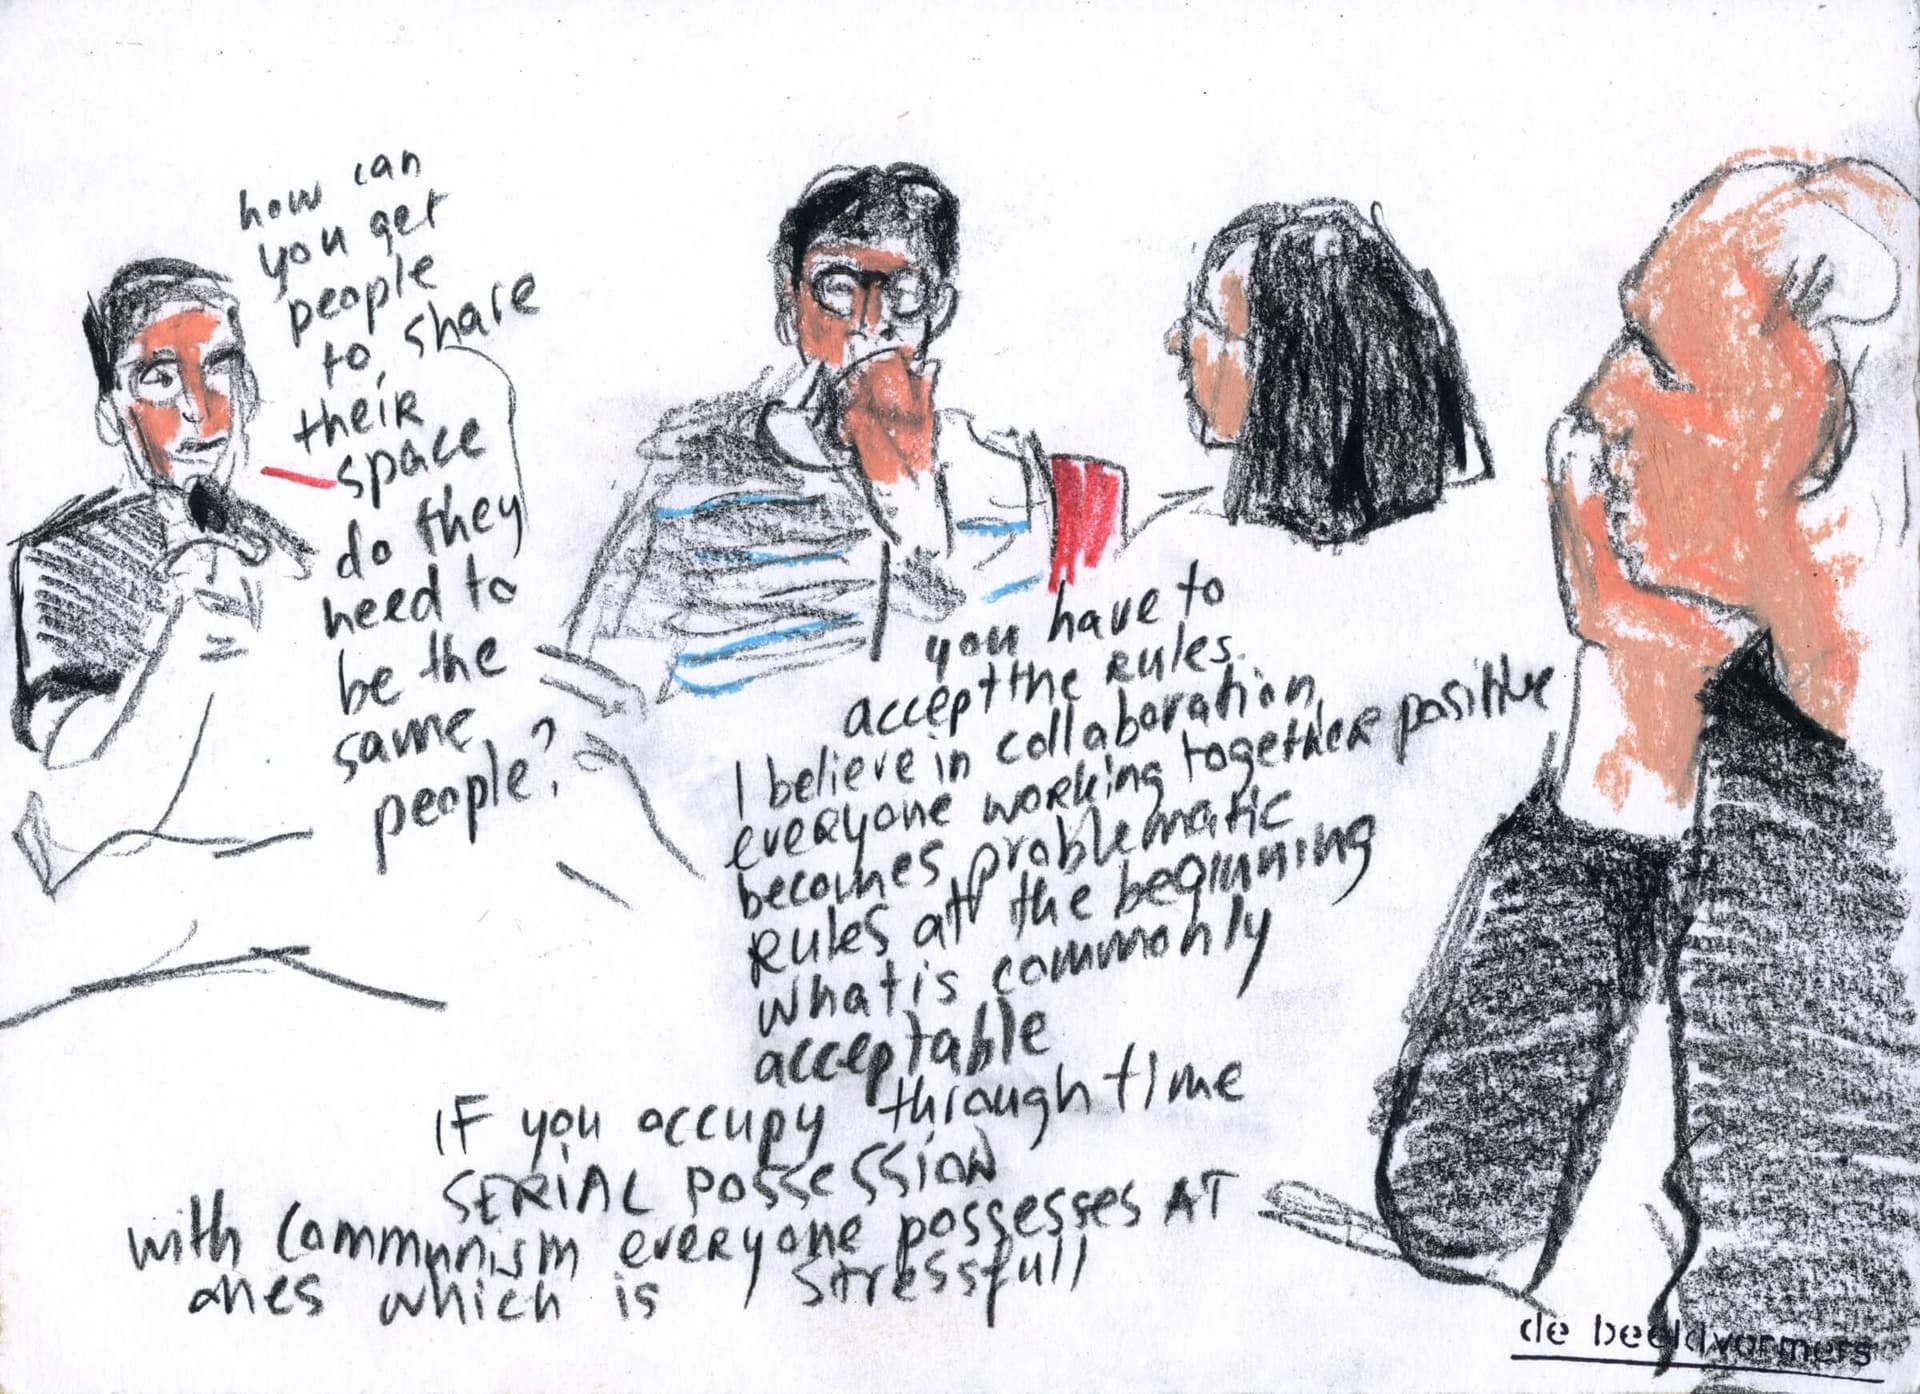 how can
you get
people
to share
their
space
do they
need to
be the
same
people?
you have to
accept the rules.
I believe in collaboration
everyone working together positive
becomes problematic
rules at the beginning
what is commonly
acceptable
IF you occupy through time
SERIAL possession
with communism everyone possesses AT
ones which is stressfull
de beeldvormers